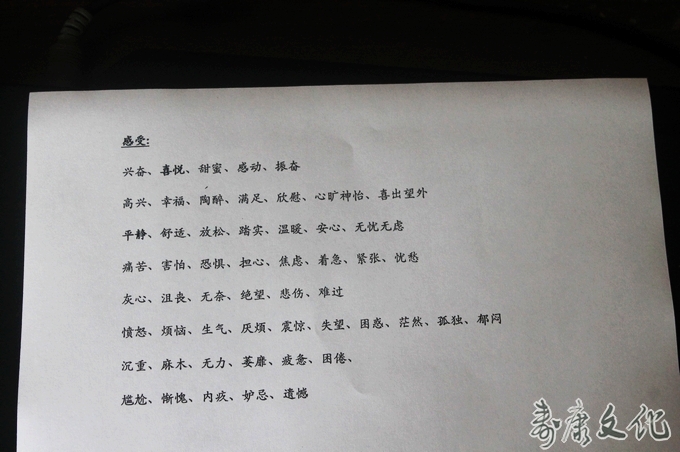 感受:
兴奋、喜悦、甜蜜、感动、振奋
高兴、幸福、陶醉、满足、欣慰、心旷神怡、喜出望外
平静、舒适、放松、踏实、温暖、安心、无忧无虑
痛苦、害怕、恐惧、担心、焦虑、着急、紧张、忧愁
灰心、沮丧、无奈、绝望、悲伤、难过
愤怒、烦恼、生气、厌烦、震惊、失望、困惑、茫然、孤独、郁闷
沉重、麻木、无力、萎靡、疲惫、困倦、
尴尬、惭愧、内疚、妒忌、遗憾
寿康文化